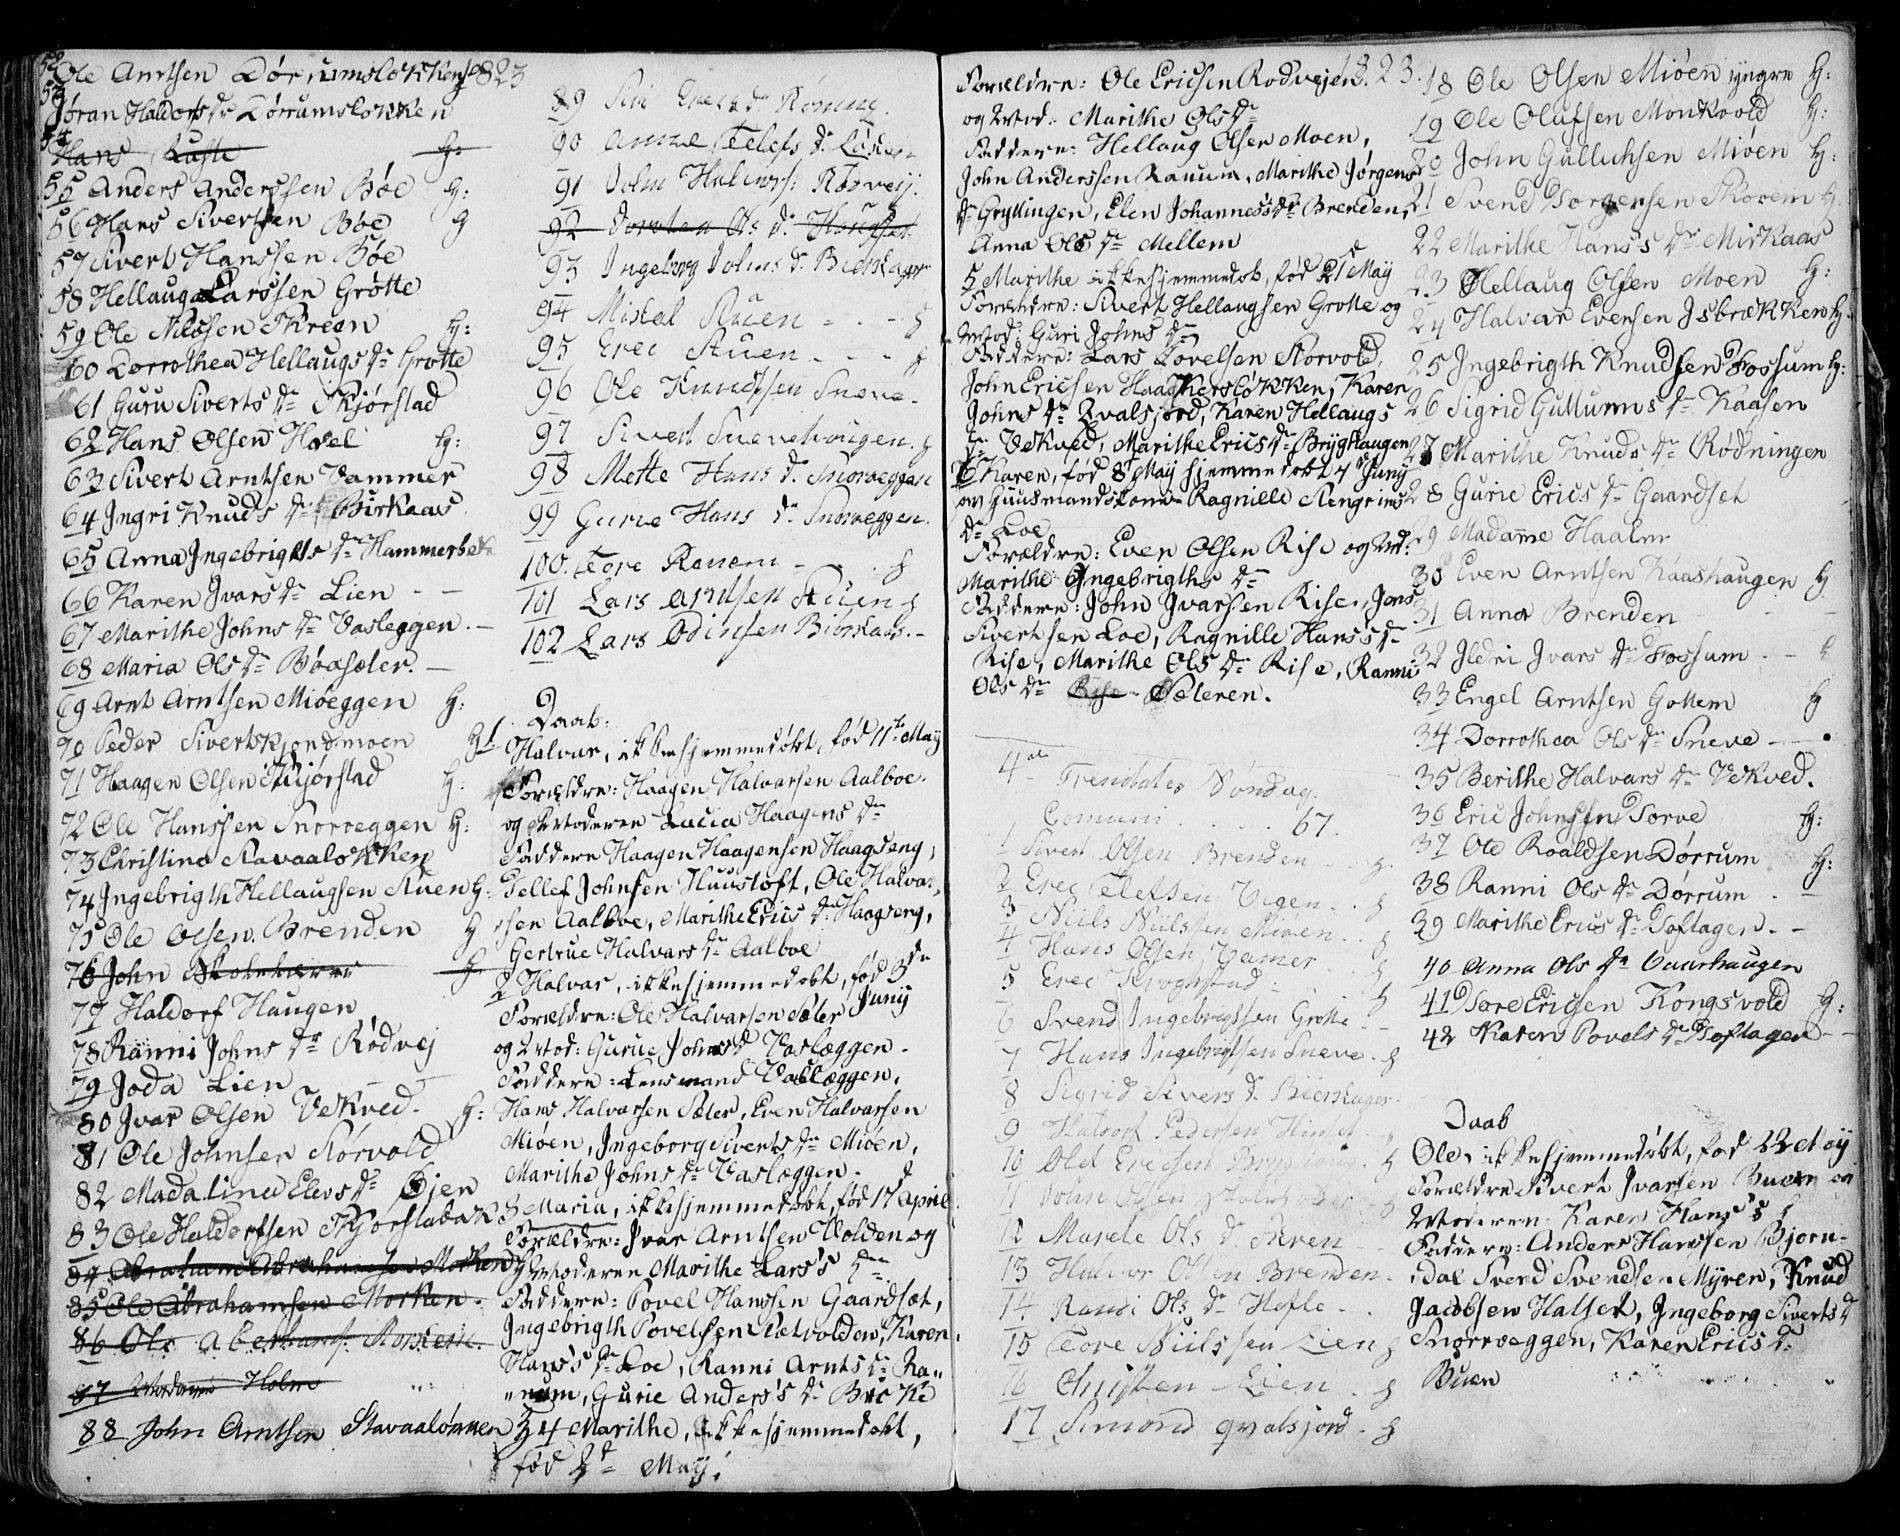 52 Ole Arntsen Dørrumsløkken 1823
53 Jøran Haldors Dr Dørrumsløkken
54 Hans Kuste H:
55 Anders Anderssen Bøe H:
56 Hans Sivertsen Bøe H
57 Sivert Hanssen Bøe
58 Hellaug Larssen Grøtte
59 Ole Nilssen Skreen H:
60 Dorrothea Hellaugs Dr Grøtte
61 Guru Siverts Dr Skjørstad
62 Hans Olsen Hoel H:
63 Sivert Arntsen Vammer
64 Ingri Knuds Dr Birkaas
65 Anna Ingebrigts Dr Hammerbek
66 Karen Ivars Dr Lien - -
67 Marithe Johns Dr Vasleggen -
68 Maria Ols Dr Bøasæter. -
69 Arnt Arntsen Miøeggen H:
70 Peder Sivertskjondmoen H
71 Haagen Olsen Skjørstad H:
72 Ole Hanssen Snoeveggen H:
73 Christina Stavaaløkken
74 Ingebrigth Hellaugsen Stuen H:
75 Ole Olsen Brenden H
76 John Skoleholder H
77 Haldorf Haugen
78 Ranni Johns Dr Rødvej
79 Joda Lien
80 Ivar Olsen Vekved. H:
81 Ole Johnsen Storvold
82 Madalina Elevs Dr Øien
83 Ole Haldorfsen Skjørstadak
84 Abraham Abrahamsen Morken H
85 Ole Abrahamsen Morken.
86 Ole
87 Madame Holm
88 John Arntsen Stavaaløkken
89 Siri Erics Dr Ronning
90 Anne Telefs Dr
91 John Halvors: Rødveij.
92 Dorthea Ols Dr Haugset
93 Ingeborg Johns Dr Bierkager
94 Mikal Stuen - . - H
95 Erec Stuen - - - H
96 Ole Knudtsen Sneve -
97 Sivert Snevehougen. H
98 Mette Hans Dr Snoeveggen
99 Gurue Hans Dr Snoeveggen.
100. Tore Ranem - - . H
101 Lars Arntsen Stuen H
102 Lars Odinsen Biørkaas. -
Daab:
Halvar, ikke hjemmedøbt, fød 11te May
Forældre: Haagen Halvarsen Aalboe.
og Moderen Lucia Haagens Dr
Faddere Haagen Haagensen Haagseng,
Tellef Johnsen Huustoft, Ole Halvar,
sen Aalboe, Marithe Erics Dr Haagseng,
Gertrue Halvars Dr Aalboe
2 Halvar, ikke hjemmedøbt, fød 3de Junij
Forældre: Ole Halvarsen Sæter
og Mod: Gurue Johns Dr Vaslæggen.
Faddere: Lensmand Vaslæggen,
Hans Halvarsen Sæter, Even Halvarsen
Miøen, Ingeborg Siverts Dr Miøen,
Marithe Johns Dr Vaslæggen.
3 Maria, ikke hjemmedøbt, fød 17 April
Forældre: Ivar Arntsen Volden og
Moderen Marithe Lars's Dr
Faddere: Povel Hanssen Gaardsæt,
Ingebrigth Povelsen Sætvolden, Karen
Hans's Dr Loe, Ranni Arnts Dr Ra"
"num, Gurie Anders's Dr
4 Marithe, ikke hjemmedøbt,
fød 2d May.
Forældre: Ole Ericsen Rødvejen. 1823.
og Mod: Marithe Ols Dr
Faddere: Hellaug Olsen Moen,
John Anderssen Rauum, Marithe Jørgens
Dr Gryttingen, Elen Johanness Dr Brenden,
Anna Ols Dr Mellem
5 Marithe ikke hjemmedøbt, fød 21 May
Forældre: Sivert Hellaugsen Grøtte og
Mod: Guri Johns Dr
Faddere: Lars Povelsen Storvold,
John Ericsen Haagkersløkken, Karen
Johns Dr Qvalsjord, Karen Hellaugs
Dr Vekved, Marithe Erics Dr Brijghaugen
6 Karen, fød 8 May hjemmedøbt 4de Junij
af Huusmandskone Ragnille Stengrims
Dr Loe
Forældre: Even Olsen Rise og Md:
Marithe Ingebrigths Dr
Faddere: John Ivarsen Rise, Jens
Sivertsen Loe, Ragnille Hans's Dr
Rise, Marithe Ols Dr Rise, Ranni
Ols Dr Rise Sæteren.
4de Trenitates Søndag.
Comuni . . . . 67.
1 Sivert Olsen Brenden . H
2 Erec Telefsen Vigen . . H
3 Niils Niilssen Miøen . . H
4 Hans Olsen Vamer H
5 Erec Krogstad . . H
6 Svend Ingebrigtsen Grøtte - -
7 Hans Ingebrigtsen Sneve . H
8 Sigrid Sivers Dr Bierkager -
9 Haldorf Pedersen
10 Olef Erecsen Bryghaug . H
11 John Olsen Skoleholder H
12 Marete Ols Dr Skreen
13 Halvor Olsen Brenden -
14 Randi Ols Dr Hofle . .
15 Tore Niilssen Lien H
16 Christen Lien . H
17 Simond Qvalsjord . H
18 Ole Olsen Miøen yngre H:
19 Ole Olufsen Monkvold H:
20 John Gulluhsen Miøen H:
21 Svend Jorgensen Skorem H.
22 Marithe Hans's Dr Mirkaas
23 Hellaug Olsen Moen H:
24 Halvar Evensen Isbrækken H-
25 Ingebrigth Knudsen Fossum H:
26 Sigrid Gullums Dr Kaasen
27 Marithe Knuds Dr Rødningen
28 Gurie Erics Dr Gaardset
29 Madame Haalm
30 Even Arntsen Kaashaugen H
31 Anna Brenden
32 Ildri Ivars Dr Fossum - -
33 Engel Arntsen Gottem H
34 Dorrothea Ols Dr Sneve - -
35 Berithe Halvars Dr Vekved.
36 Eric Johnsen Torve H:
37 Ole Roaldsen Dørrum H:
38 Ranni Ols Dr Dørrum . -
39 Marithe Erics Dr Toftagen. -
40 Anna Ols Dr Vaarhaugen
41 Tore Ericsen Kongsvold H:
42 Karen Povels Dr Toftagen - -
Daab
Ole, ikke hjemmedøbt, fød 22 May
Forældre Sivert Ivarsen Buen og
Moderen: Karen Hans's Dr
Faddere: Anders Hanssen Bjorn-
dal Svend Svendsen Myren, Knud
Jacobsen Halset, Ingeborg Siverts Dr
Snorroeggen, Karen Erics Dr
Buen